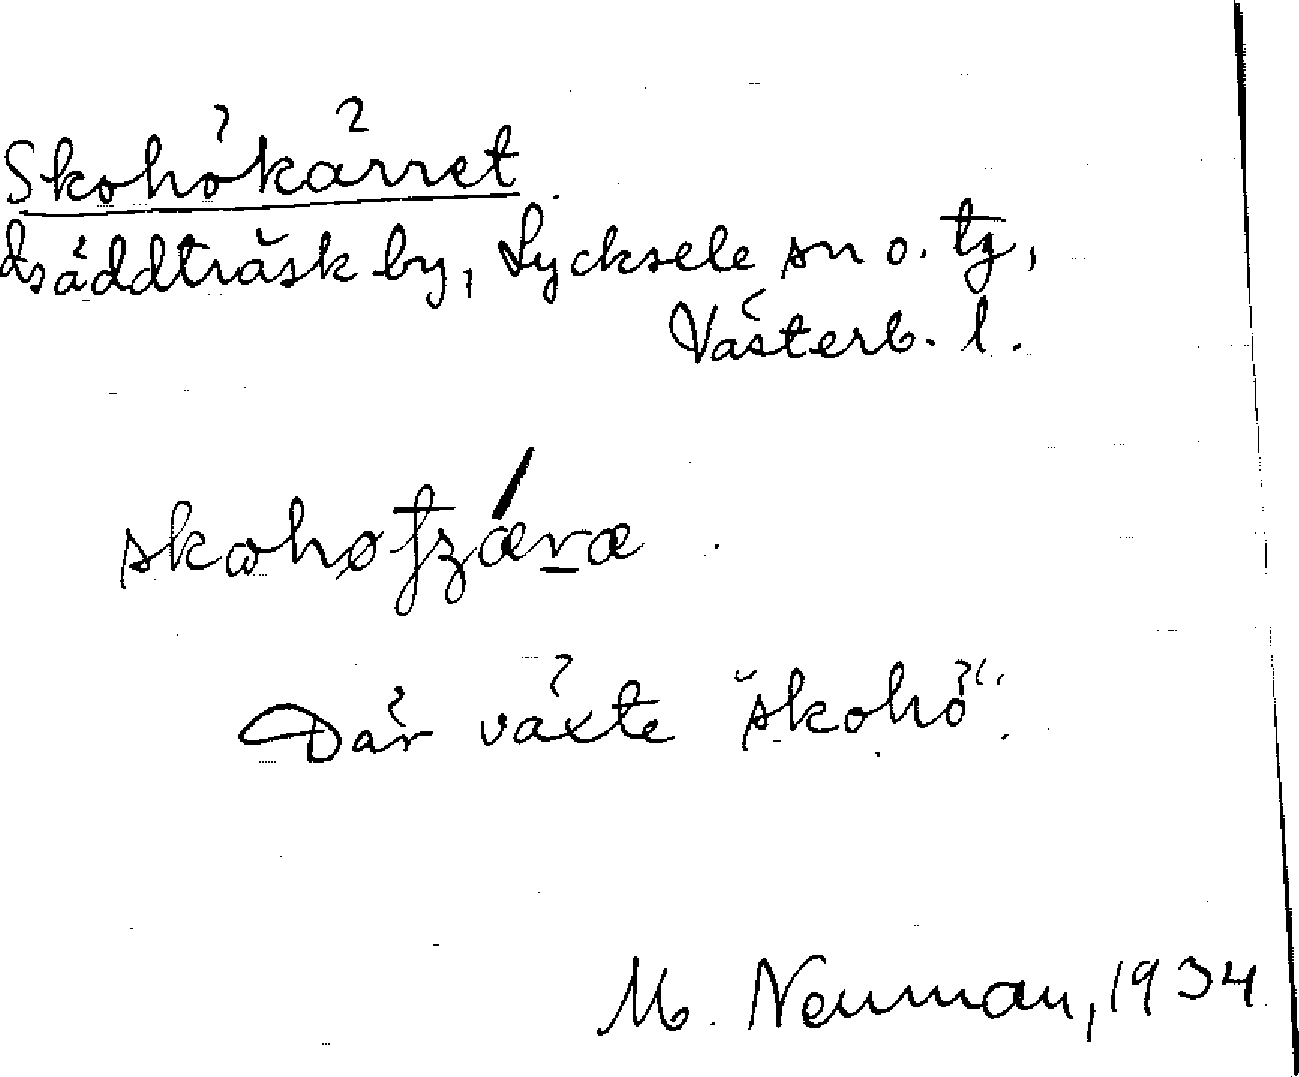 Skohökärret
Gäddträsk by, Lycksele sn o. tg,
Västerb. l.
Där växte "skohö".
M. Neuman, 1934